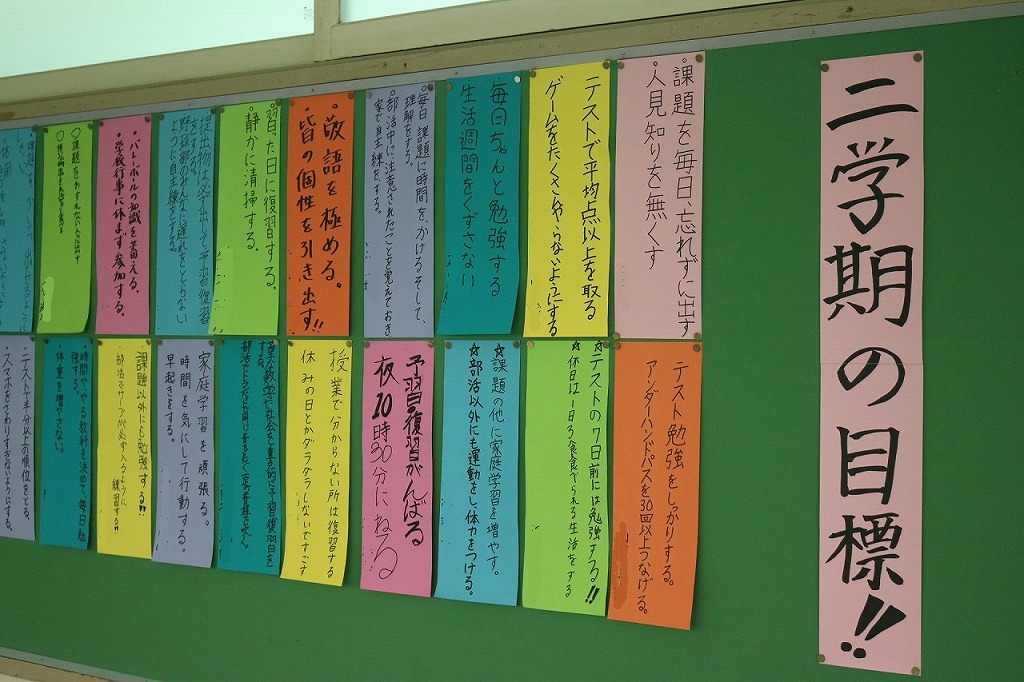 二学期の目標!!
・課題を毎日、忘れずに出す
・人見知りを無くす
テストで平均点以上を取る
ゲームをたくさんやらないようにする
毎日ちゃんと勉強する
生活週間をくずさない
・毎日課題に時間を、かけるそして、
理解をする。
・部活中に注意されたことを覚えておき
家で自主練をする。
・敬語を極める。
・皆の個性を引き出す!!
習った日に復習する。
静かに清掃する。
提出物は必ず出して、予習復習
をする。
・バレーボールの知識を蓄える。
・学校行事に休まず参加する。
○課題をわすれないように出す
テスト勉強をしっかりする。
アンダーハンドパスを30回以上つなげる。
★テストの7日前には勉強する!!
★休日は1日3食食べられる生活をする
☆課題の他に家庭学習を増やす。
☆部活以外にも運動をし体力をつける。
予習復習がんばる
夜10時30分にねる
授業で分からない所は復習する
休みの日とかダラダラしないですごす
家庭学習を頑張る。
時間を気にして行動する。
早起きをする。
課題以外にも勉強する!!
部活でサーブが必ず入るように
練習する!!
時間ややる教科を決めて、毎日勉
強する。
体重を増やさない。
テストで半分以上の順位をとる。
スマホをさわりすぎないようにする。